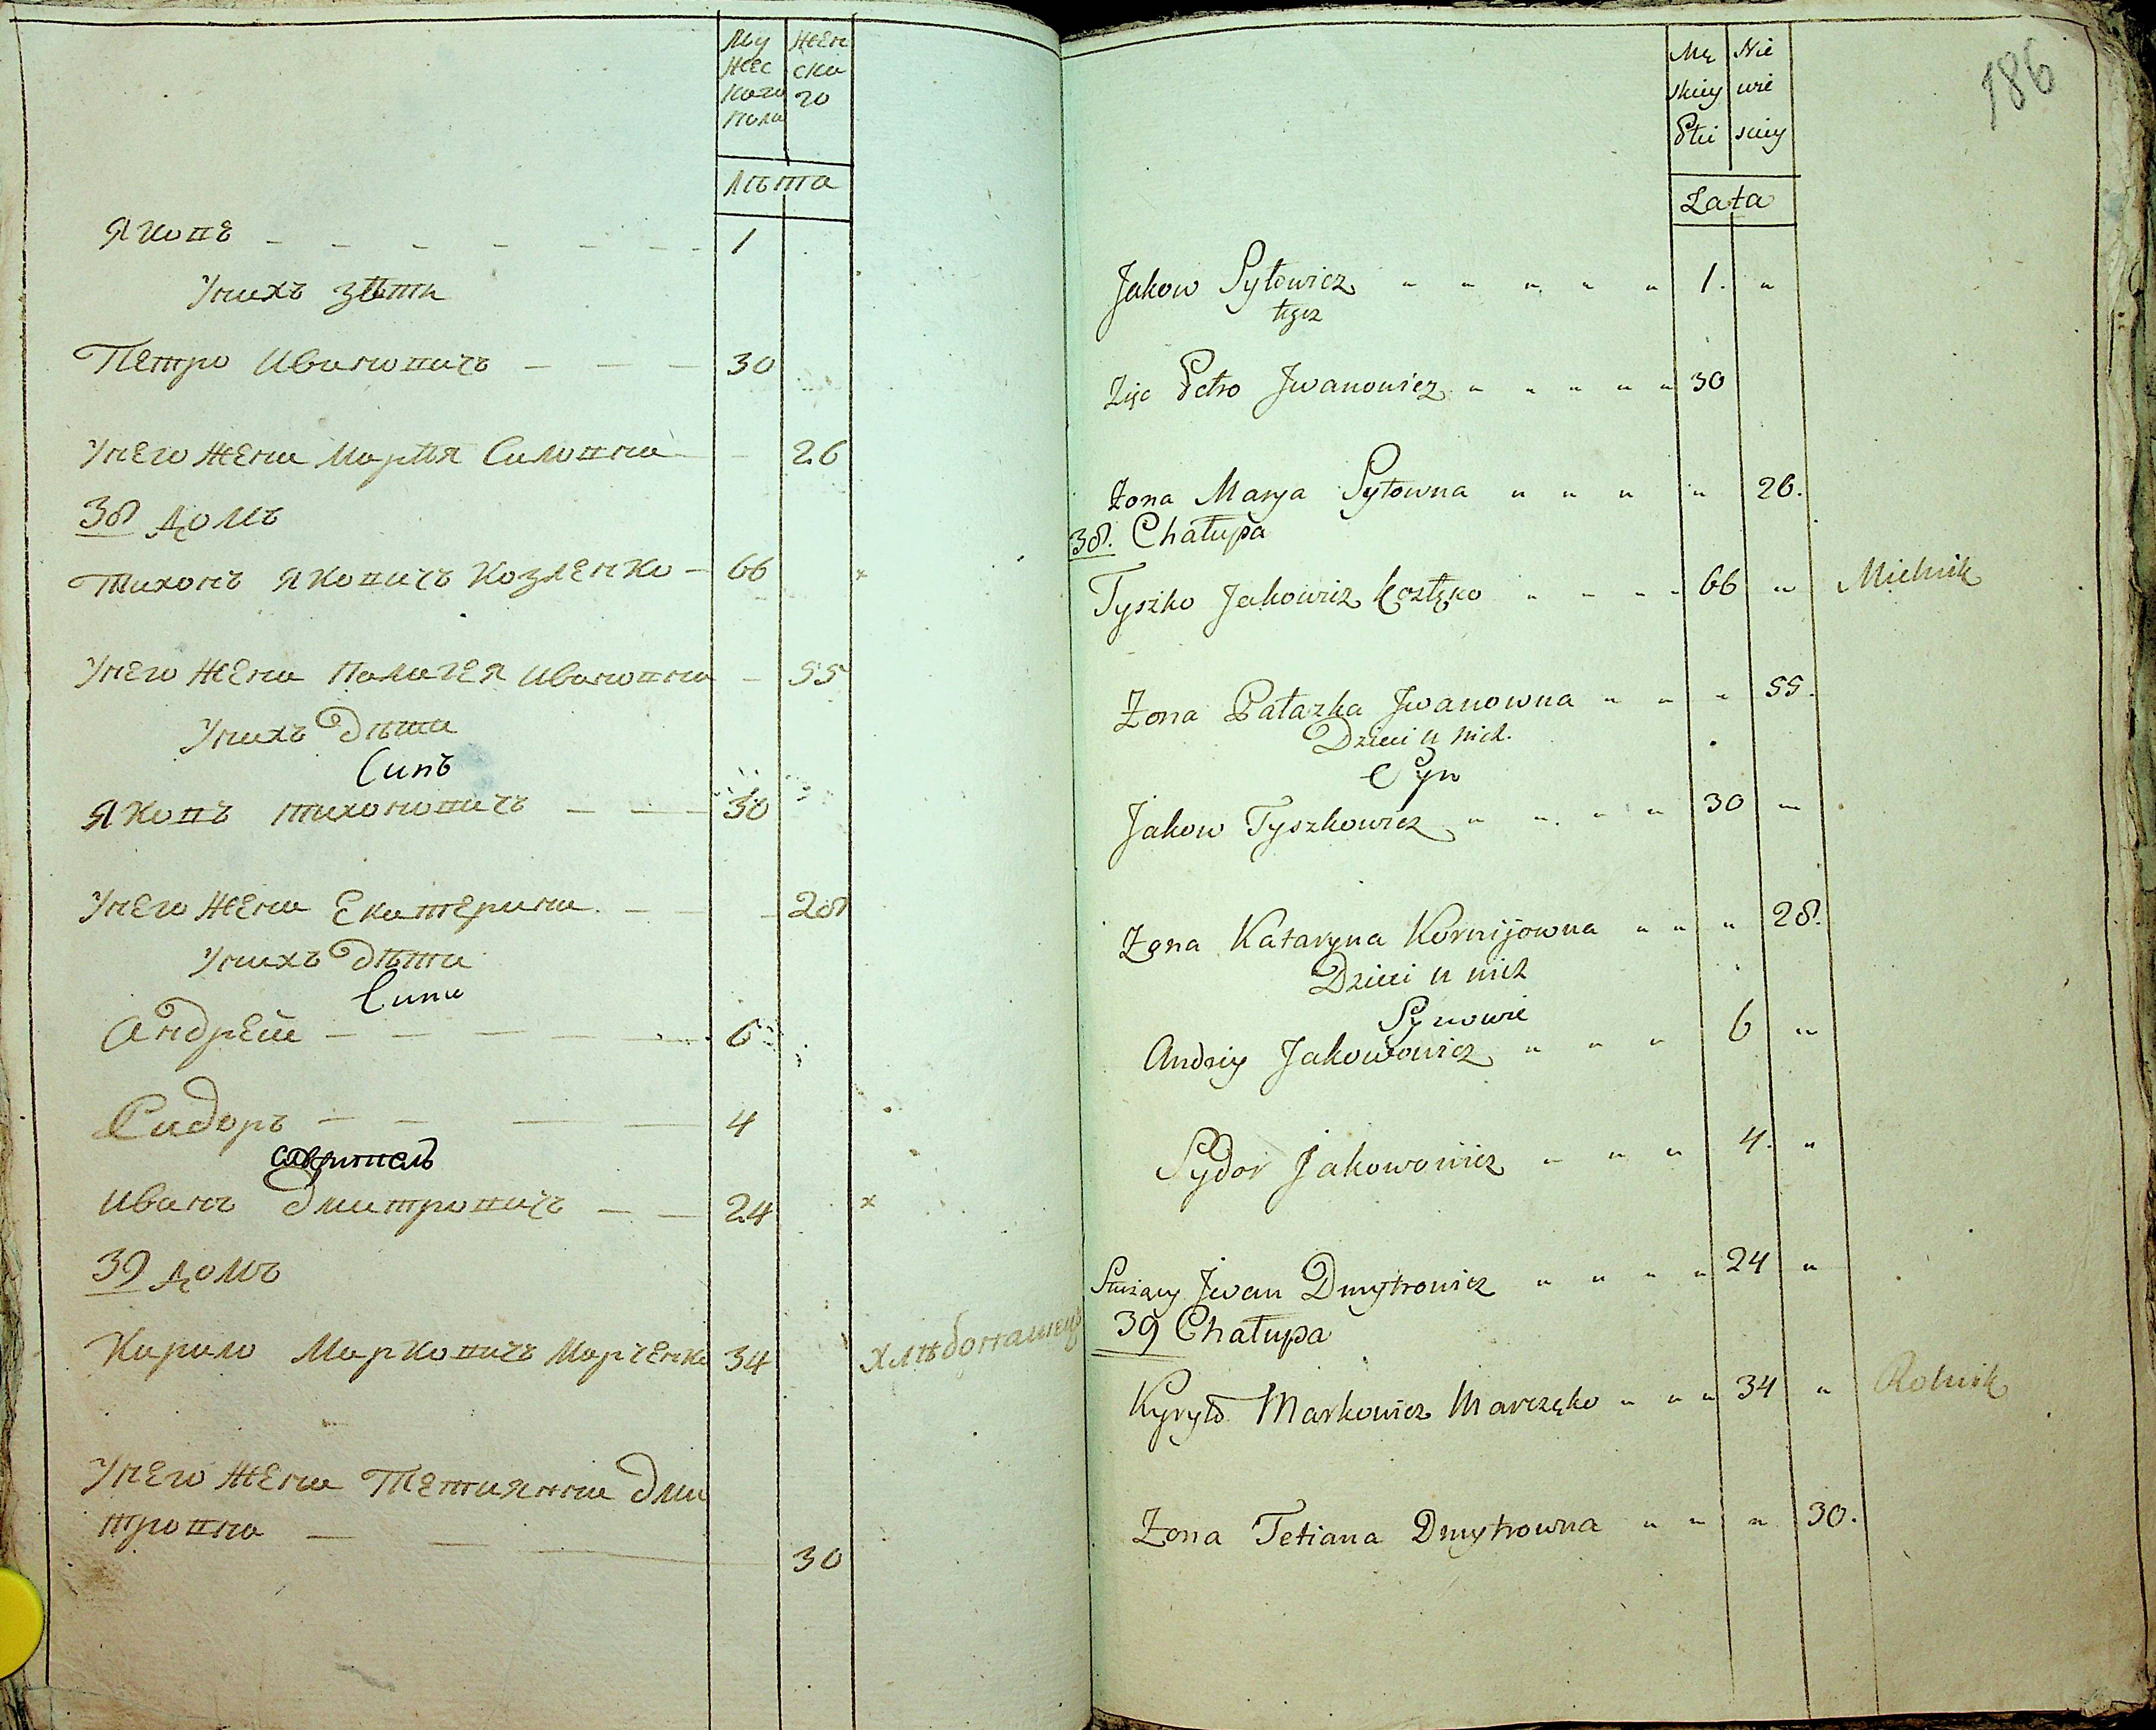 Му Жен
жес ска
каго го
пола
Лѣта
Яковъ — — — — — — 1
У нихъ зѣть
Петро Ивановичъ — — — 30
У него жена Марія Силовна — 26
38 домъ
Тихонъ Яковичъ Козленко — 66 ×
У него жена Палагея Ивановна — 55
У нихъ дѣти
Синъ
Яковъ Тихоновичъ — — 30
У него жена Екатерина — — 28
У нихъ дѣти
Сини
Андрей — — — — — 6
Сидоръ — — — — 4
Иванъ Дмитровичъ — — 24 ×
39 домъ
Кирило Марковичъ Марченко 34 хлѣбопашецъ
У него жена Тетиянна Дми
тровна — — — 30
186
Mę Nie
skiey wie
Płci sciey
Lata
Jakow Sytowicz " " " " " 1. "
Zięc Petro Jwanowicz " " " " " 30
Żona Marya Sytowna " " " " 26.
38. Chałupa
Tyszko Jakowicz Kozłęko " " " " 66 " Mielnik
Żona Pałazka Jwanowna " " " 55.
Dzieci u nich.
Syn
Jakow Tyszkowicz " " " " 30 "
Żona Kataryna Kornijowna " " " 28.
Dzieci u nich
Synowie
Andriy Jakowowicz " " " 6 "
Sydor Jakowowicz " " " 4. "
Służący Jwan Dmytrowicz " " " " 24 "
39 Chałupa
Kyryło Markowicz Marczęko " " " 34 " Rolnik
Żona Tetiana Dmytrowna " " " 30.